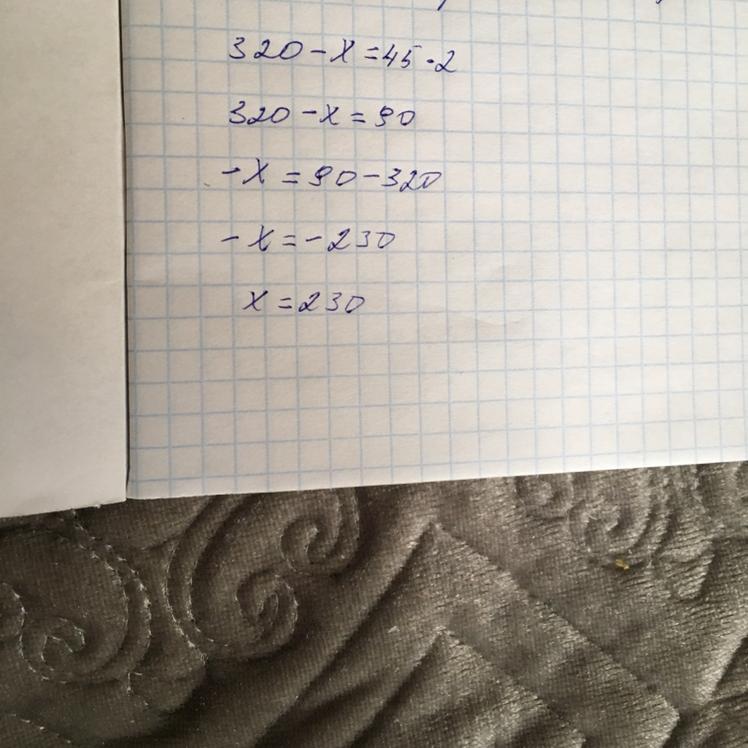 320 - x = 45 · 2
320 - x = 90
- x = 90 - 320
- x = - 230
x = 230